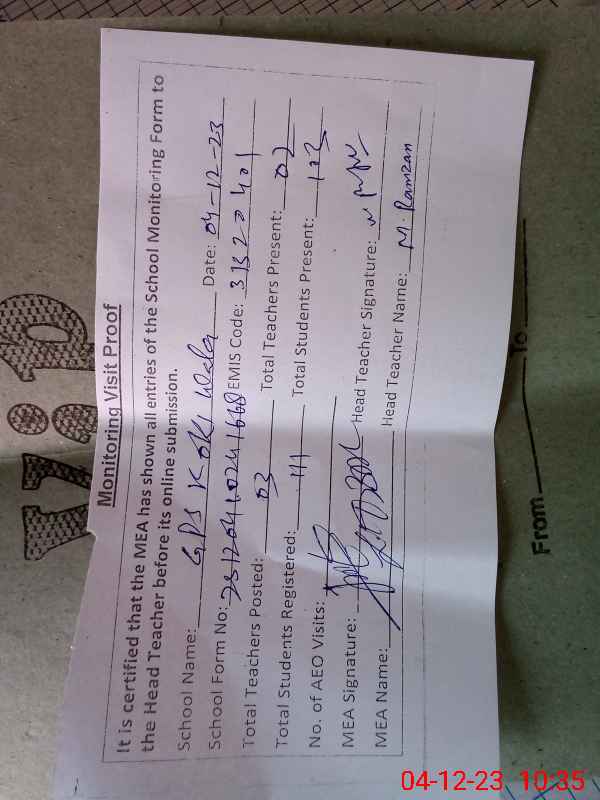 Monitoring Visit Proof
It is certified that the MEA has shown all entries of the School Monitoring Form to
the Head Teacher before its online submission.
School Name: GPS Koki Wala Date: 04-12-23
School Form No: EMIS Code: 31320401
Total Teachers Posted: 03 Total Teachers Present: 02
Total Students Registered: 111 Total Students Present: 103
No. of AEO Visits:
MEA Signature: Head Teacher Signature:
MEA Name: Head Teacher Name: M. Ramzan
From To
04-12-23 10:35